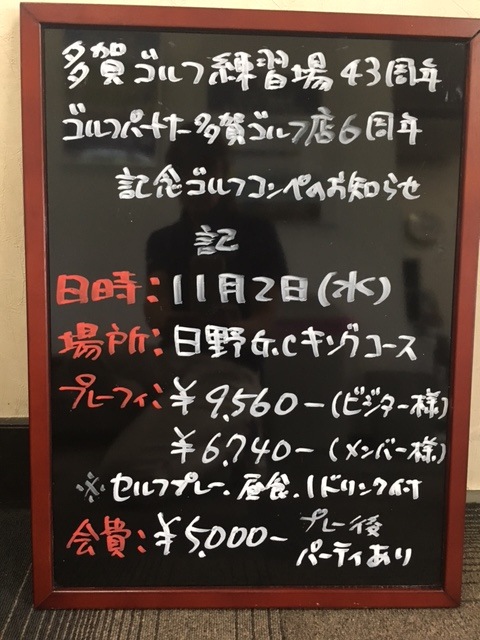 多賀ゴルフ練習場43周年
ゴルフパートナー多賀ゴルフ店6周年
記念ゴルフコンペのお知らせ
記
日時:11月2日(水)
場所:日野G.Cキングコース
プレーフィ:¥9,560-(ビジター様)
¥6,740-(メンバー様)
※セルフプレー.昼食.1ドリンク付
会費:¥5,000-プレー後
パーティあり